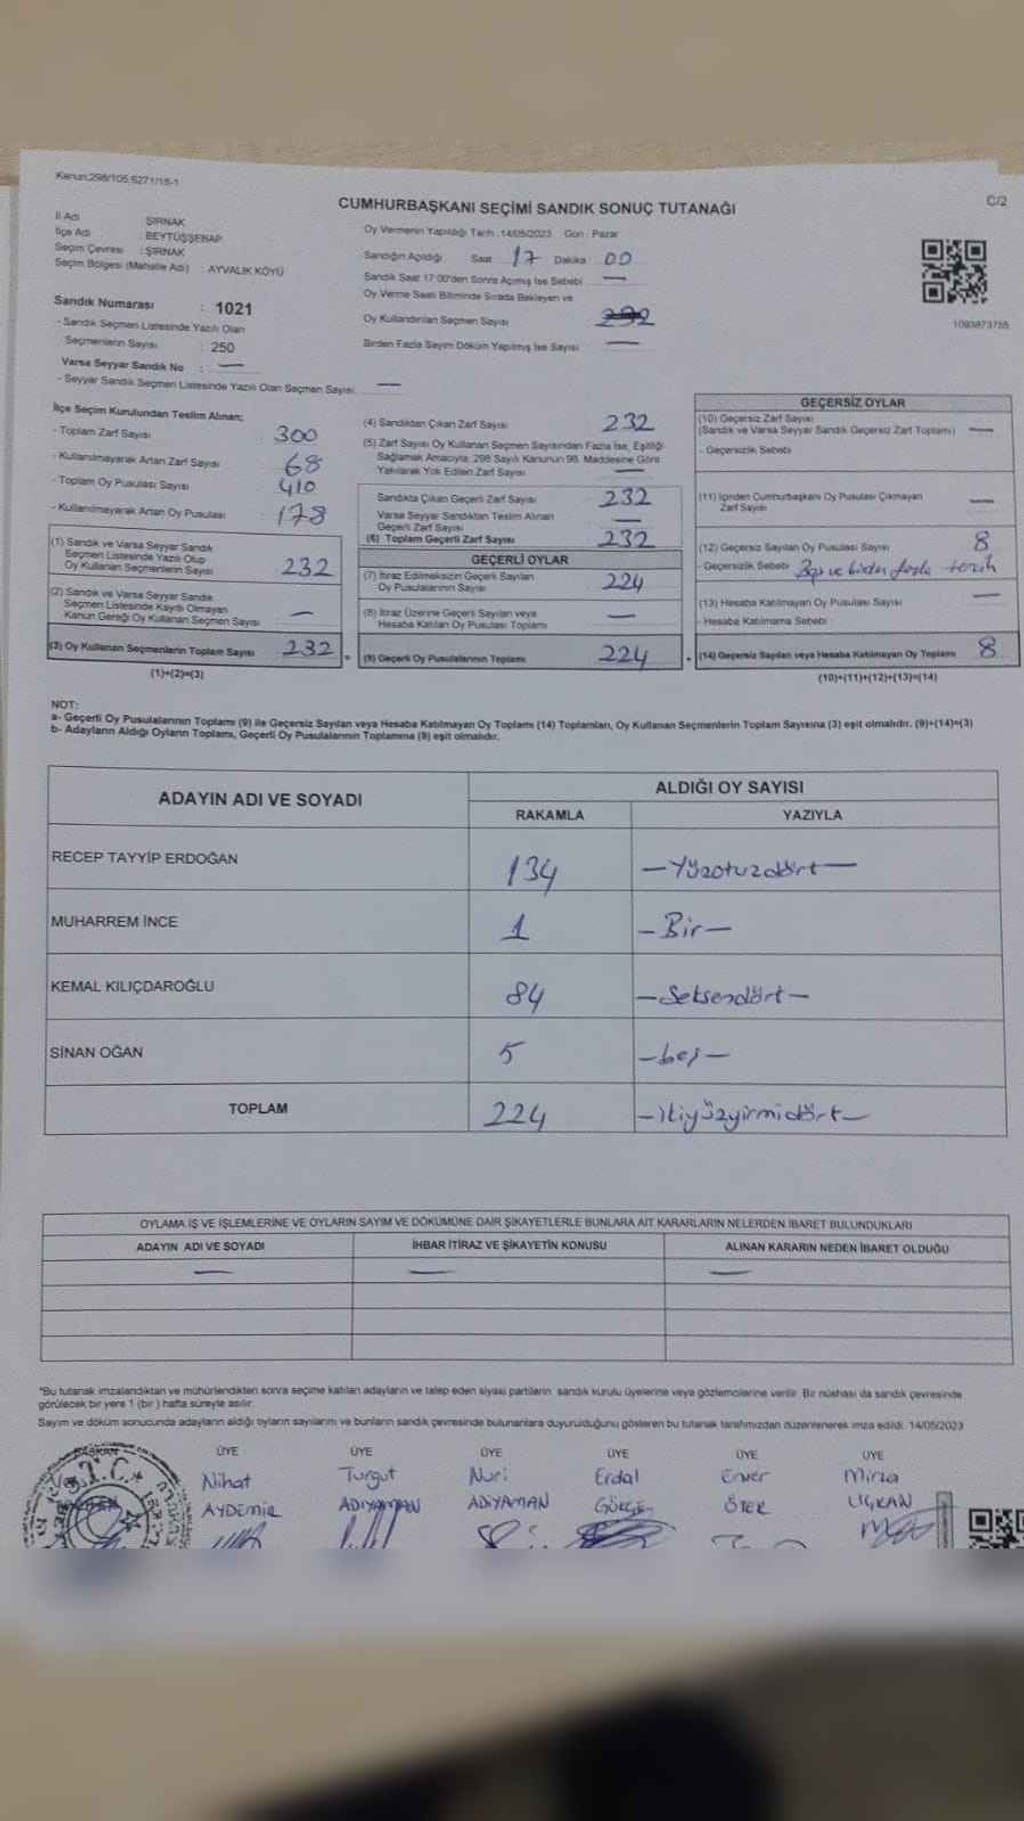 Kanun:298/105,6271/15-1
C/2
CUMHURBAŞKANI SEÇİMİ SANDIK SONUÇ TUTANAĞI
İl Adı : ŞIRNAK
İlçe Adı : BEYTÜŞŞEBAP
Seçim Çevresi : ŞIRNAK
Seçim Bölgesi (Mahalle Adı) : AYVALIK KÖYÜ
Sandık Numarası : 1021
- Sandık Seçmen Listesinde Yazılı Olan
Seçmenlerin Sayısı : 250
Varsa Seyyar Sandık No : —
- Seyyar Sandık Seçmen Listesinde Yazılı Olan Seçmen Sayısı : —
Oy Vermenin Yapıldığı Tarih : 14/05/2023 Gün : Pazar
Sandığın Açıldığı Saat 17 Dakika : 00
Sandık Saat 17:00'den Sonra Açılmış İse Sebebi —
Oy Verme Saati Bitiminde Sırada Bekleyen ve
Oy Kullandırılan Seçmen Sayısı
Birden Fazla Sayım Döküm Yapılmış İse Sayısı —
1093873755
İlçe Seçim Kurulundan Teslim Alınan;
- Toplam Zarf Sayısı : 300
- Kullanılmayarak Artan Zarf Sayısı : 68
- Toplam Oy Pusulası Sayısı : 410
- Kullanılmayarak Artan Oy Pusulası : 178
(1) Sandık ve Varsa Seyyar Sandık
Seçmen Listesinde Yazılı Olup
Oy Kullanan Seçmenlerin Sayısı 232
(2) Sandık ve Varsa Seyyar Sandık
Seçmen Listesinde Kayıtlı Olmayan
Kanun Gereği Oy Kullanan Seçmen Sayısı —
(3) Oy Kullanan Seçmenlerin Toplam Sayısı 232 =
(1)+(2)=(3)
(4) Sandıktan Çıkan Zarf Sayısı 232
(5) Zarf Sayısı Oy Kullanan Seçmen Sayısından Fazla İse, Eşitliği
Sağlamak Amacıyla, 298 Sayılı Kanunun 98. Maddesine Göre
Yakılarak Yok Edilen Zarf Sayısı —
Sandıkta Çıkan Geçerli Zarf Sayısı 232
Varsa Seyyar Sandıktan Teslim Alınan
Geçerli Zarf Sayısı —
(6) Toplam Geçerli Zarf Sayısı 232
GEÇERLİ OYLAR
(7) İtiraz Edilmeksizin Geçerli Sayılan
Oy Pusulalarının Sayısı 224
(8) İtiraz Üzerine Geçerli Sayılan veya
Hesaba Katılan Oy Pusulası Toplamı —
(9) Geçerli Oy Pusulalarının Toplamı 224 +
GEÇERSİZ OYLAR
(10) Geçersiz Zarf Sayısı
(Sandık ve Varsa Seyyar Sandık Geçersiz Zarf Toplamı) —
- Geçersizlik Sebebi
(11) İçinden Cumhurbaşkanı Oy Pusulası Çıkmayan
Zarf Sayısı —
(12) Geçersiz Sayılan Oy Pusulası Sayısı 8
- Geçersizlik Sebebi Boş ve birden fazla tercih
(13) Hesaba Katılmayan Oy Pusulası Sayısı —
- Hesaba Katılmama Sebebi
(14) Geçersiz Sayılan veya Hesaba Katılmayan Oy Toplamı 8
(10)+(11)+(12)+(13)=(14)
NOT:
a- Geçerli Oy Pusulalarının Toplamı (9) ile Geçersiz Sayılan veya Hesaba Katılmayan Oy Toplamı (14) Toplamları, Oy Kullanan Seçmenlerin Toplam Sayısına (3) eşit olmalıdır. (9)+(14)=(3)
b- Adayların Aldığı Oyların Toplamı, Geçerli Oy Pusulalarının Toplamına (9) eşit olmalıdır.
ADAYIN ADI VE SOYADI
ALDIĞI OY SAYISI
RAKAMLA YAZIYLA
RECEP TAYYİP ERDOĞAN 134 —Yüzotuzdört—
MUHARREM İNCE 1 —Bir—
KEMAL KILIÇDAROĞLU 84 —Seksendört—
SİNAN OĞAN 5 —beş—
TOPLAM 224 —ikiyüzyirmidört—
OYLAMA İŞ VE İŞLEMLERİNE VE OYLARIN SAYIM VE DÖKÜMÜNE DAİR ŞİKAYETLERLE BUNLARA AİT KARARLARIN NELERDEN İBARET BULUNDUKLARI
ADAYIN ADI VE SOYADI İHBAR İTİRAZ VE ŞİKAYETİN KONUSU ALINAN KARARIN NEDEN İBARET OLDUĞU
— — —
"Bu tutanak imzalandıktan ve mühürlendikten sonra seçime katılan adayların ve talep eden siyasi partilerin sandık kurulu üyelerine veya gözlemcilerine verilir. Bir nüshası da sandık çevresinde
görülecek bir yere 1 (bir) hafta süreyle asılır.
Sayım ve döküm sonucunda adayların aldığı oyların sayılarını ve bunların sandık çevresinde bulunanlara duyurulduğunu gösteren bu tutanak tarafımızdan düzenlenerek imza edildi. 14/05/2023
BAŞKAN ÜYE ÜYE ÜYE ÜYE ÜYE ÜYE
Nihat Turgut Nuri Erdal Enver Mirza
AYDEMİR ADIYAMAN ADIYAMAN ÖTER UÇKAN
T.C.